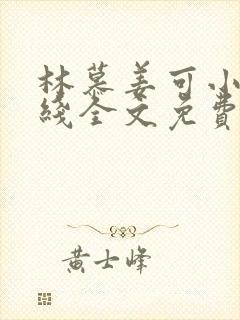 林慕姜可小
线全文免费
黄士峰